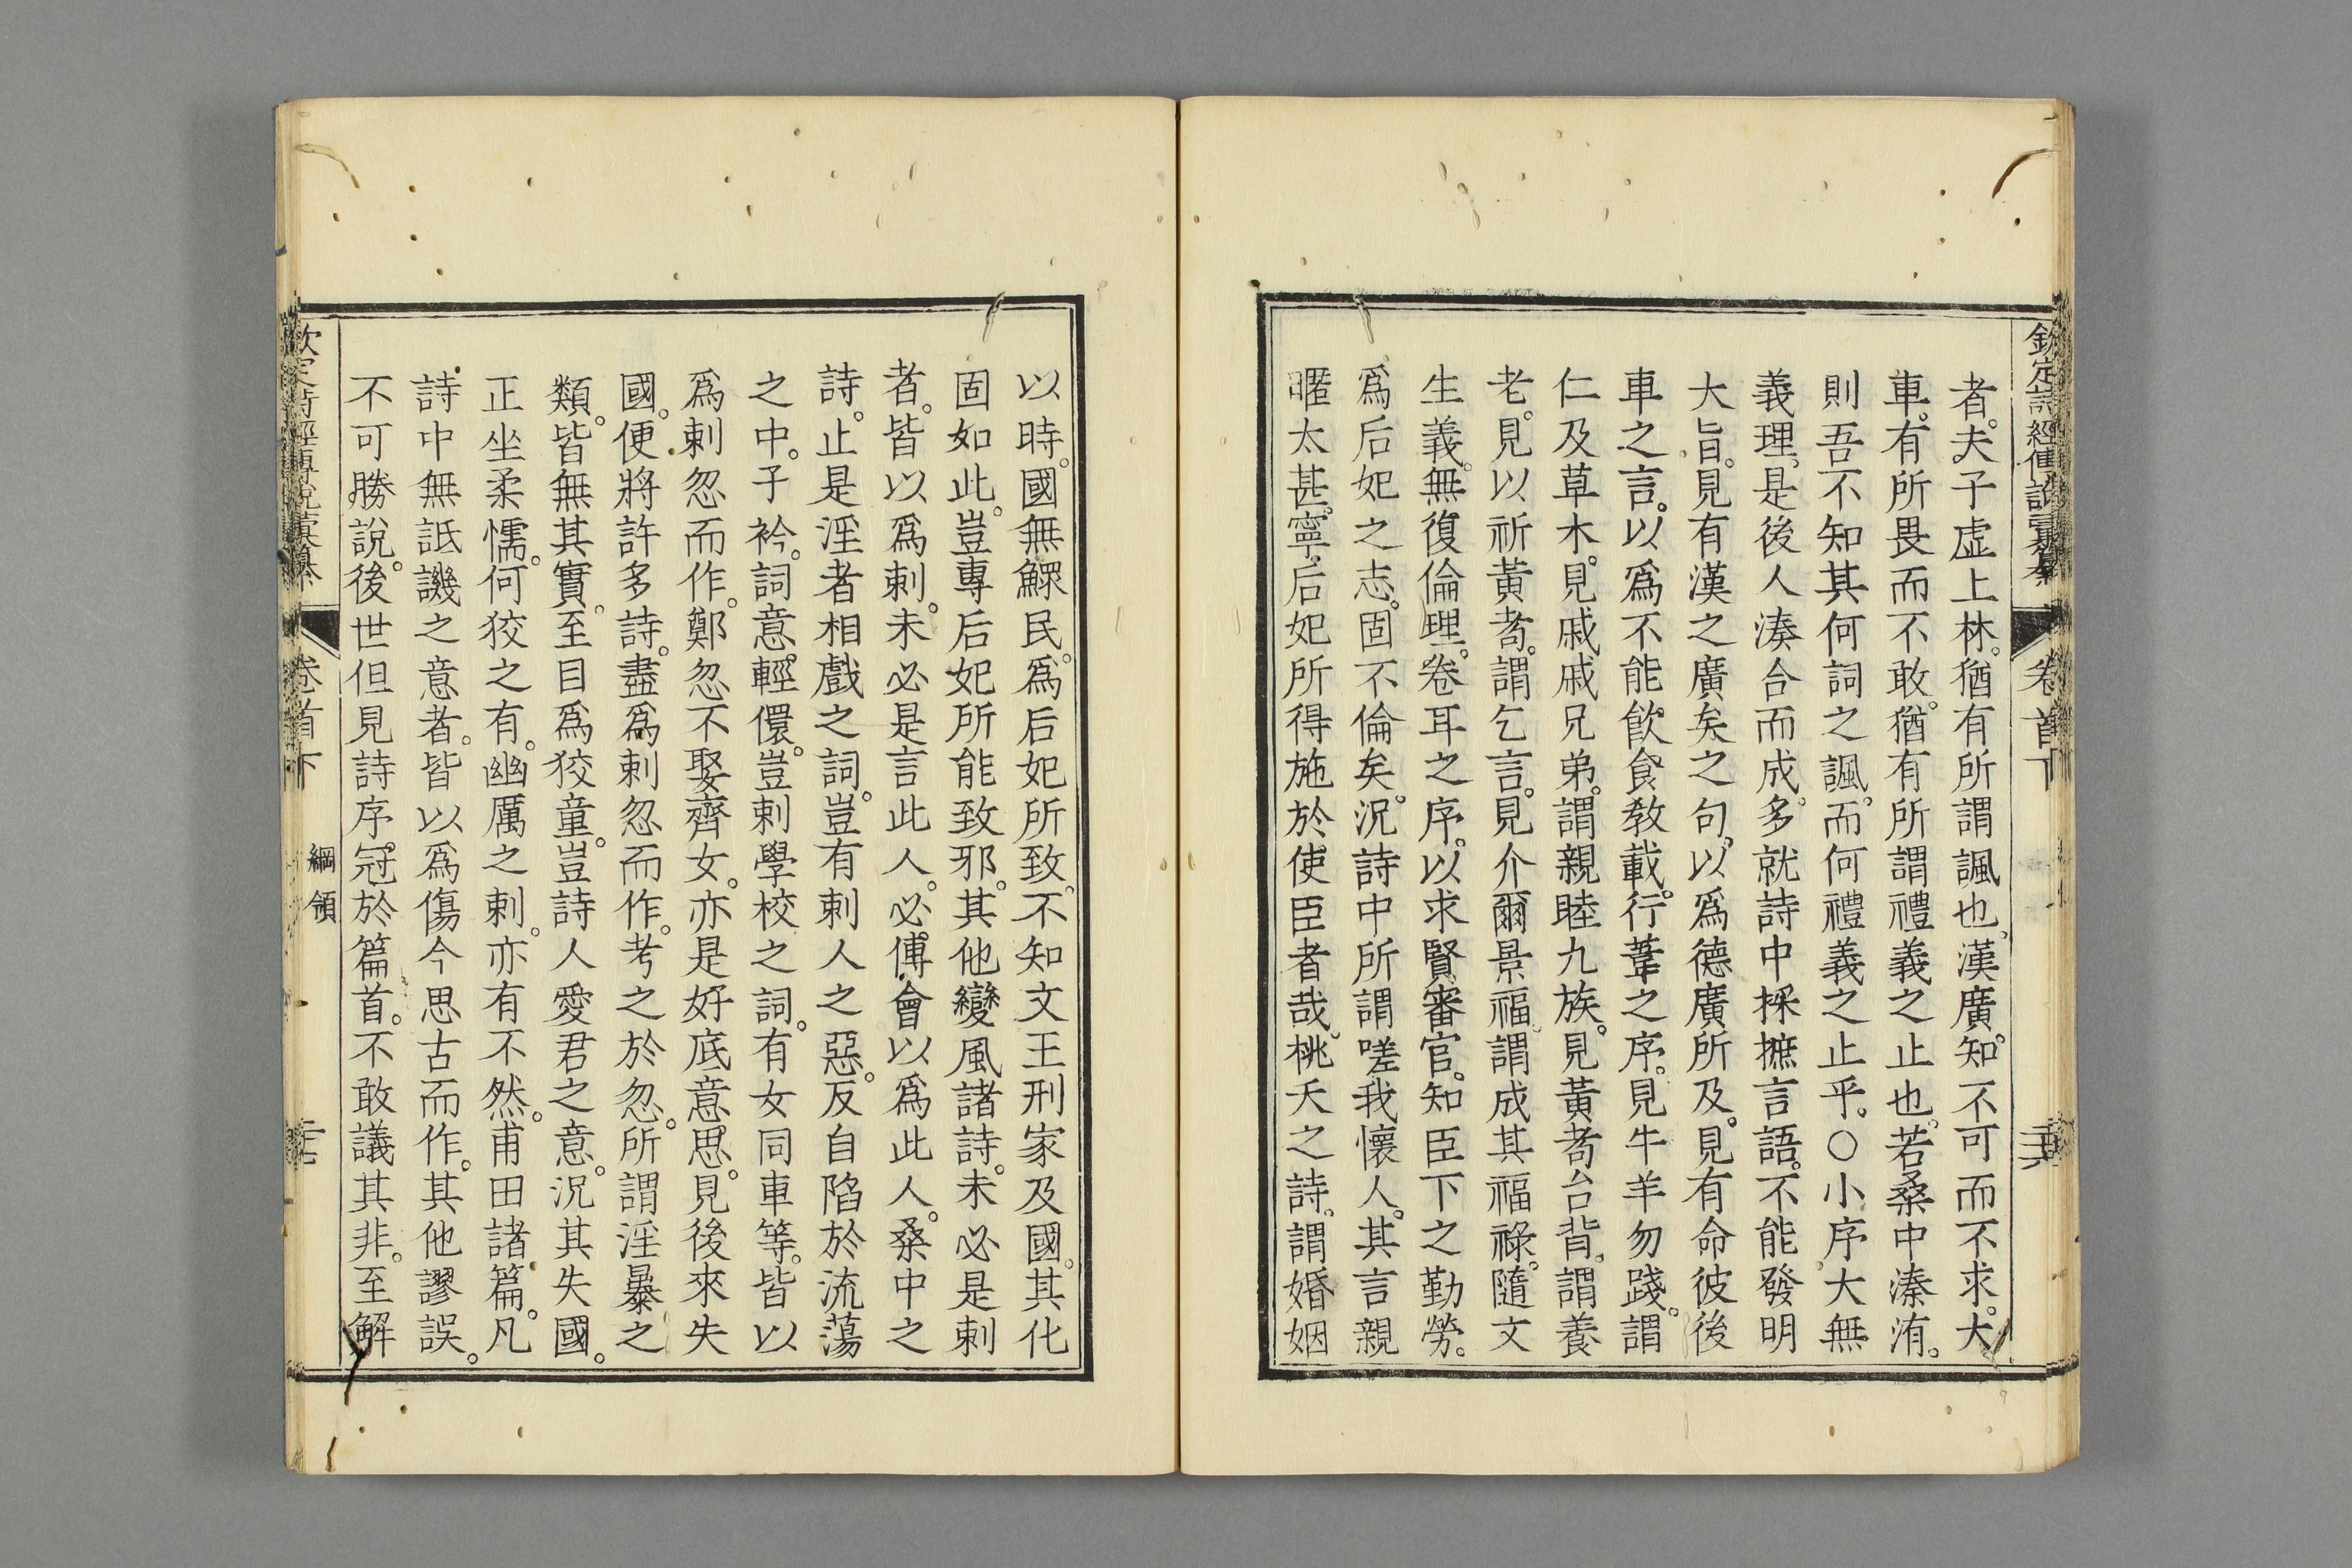 欽定詩經傳說彙纂
卷首下
二十六
者。夫子虛上林。猶有所謂諷也。漢廣。知不可而不求。大
車。有所畏而不敢。猶有所謂禮義之止也。若桑中溱洧。
則吾不知其何詞之諷。而何禮義之止乎。○小序大無
義理。是後人湊合而成。多就詩中採摭言語。不能發明
大旨。見有漢之廣矣之句。以爲德廣所及。見有命彼後
車之言。以爲不能飮食教載。行葦之序。見牛羊勿踐。謂
仁及草木。見戚戚兄弟。謂親睦九族。見黃耉台背。謂養
老。見以祈黃耉。謂乞言。見介爾景福。謂成其福祿。隨文
生義。無復倫理。卷耳之序。以求賢審官。知臣下之勤勞。
爲后妃之志。固不倫矣。況詩中所謂嗟我懷人。其言親
暱太甚。寧后妃所得施於使臣者哉。桃夭之詩。謂婚姻
以時。國無鰥民。爲后妃所致。不知文王刑家及國。其化
固如此。豈專后妃所能致邪。其他變風諸詩。未必是刺
者。皆以爲刺。未必是言此人。必傅會以爲此人。桑中之
詩。止是淫者相戲之詞。豈有刺人之惡。反自陷於流蕩
之中。子衿。詞意輕儇。豈刺學校之詞。有女同車等。皆以
爲刺忽而作。鄭忽不娶齊女。亦是好底意思。見後來失
國。便將許多詩。盡爲刺忽而作。考之於忽。所謂淫暴之
類。皆無其實。至目爲狡童。豈詩人愛君之意。況其失國。
正坐柔懦。何狡之有。幽厲之刺。亦有不然。甫田諸篇。凡
詩中無詆譏之意者。皆以爲傷今思古而作。其他謬誤。
不可勝說。後世但見詩序。冠於篇首。不敢議其非。至解
欽定詩經傳說彙纂
卷首下
綱領
二十七